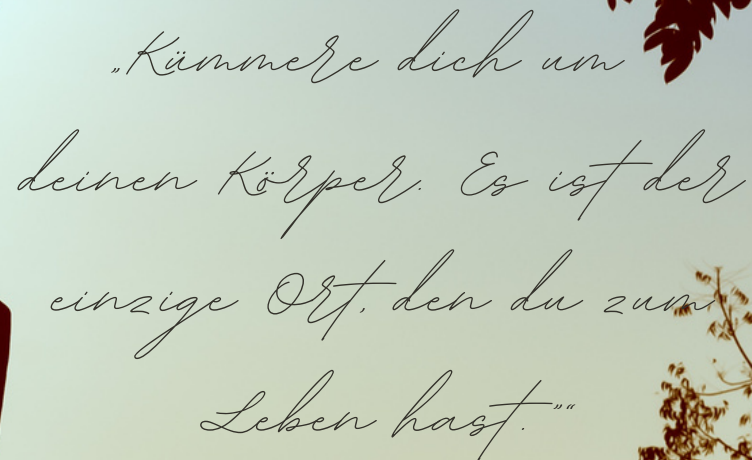 „Kümmere dich um
deinen Körper. Es ist der
einzige Ort, den du zum
Leben hast.”“